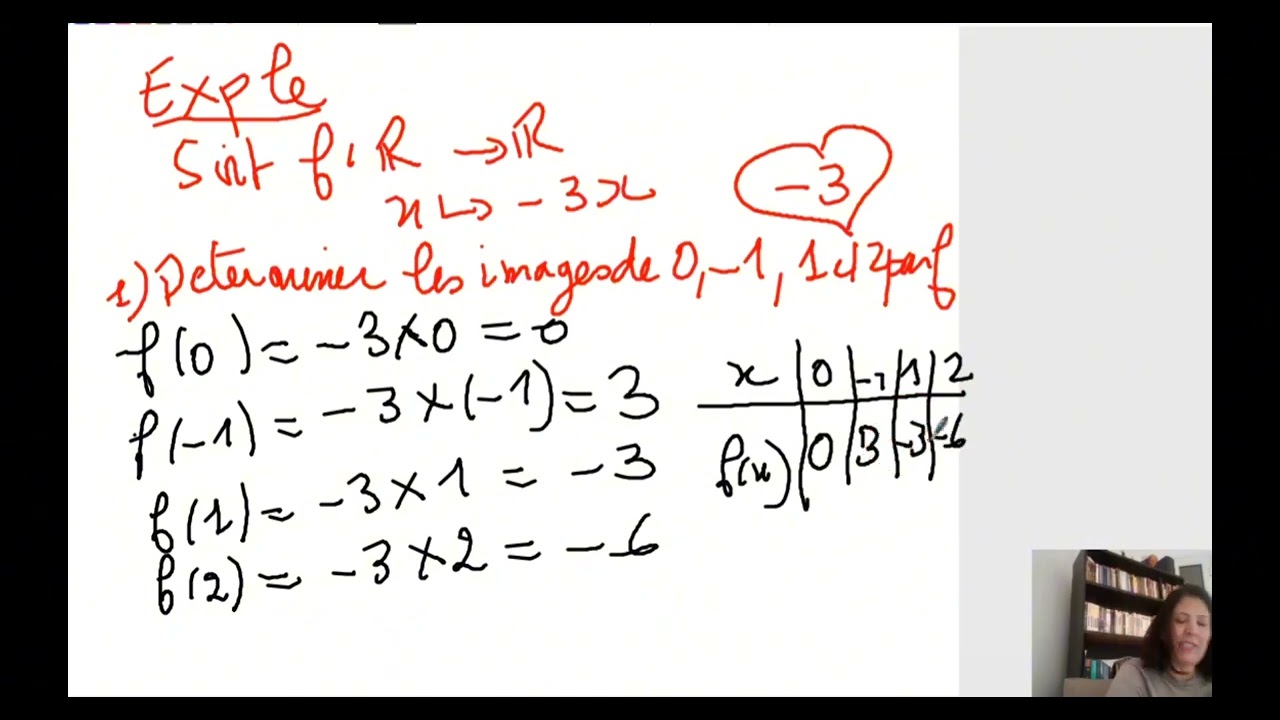 Exple
Soit f: ℝ → ℝ
x ↦ -3x
-3
1) Determiner les images de 0, -1, 1 et 2 par f
f(0) = -3×0 = 0
f(-1) = -3×(-1) = 3
f(1) = -3×1 = -3
f(2) = -3×2 = -6
x | 0 | -1 | 1 | 2
f(x) | 0 | 3 | -3 | -6